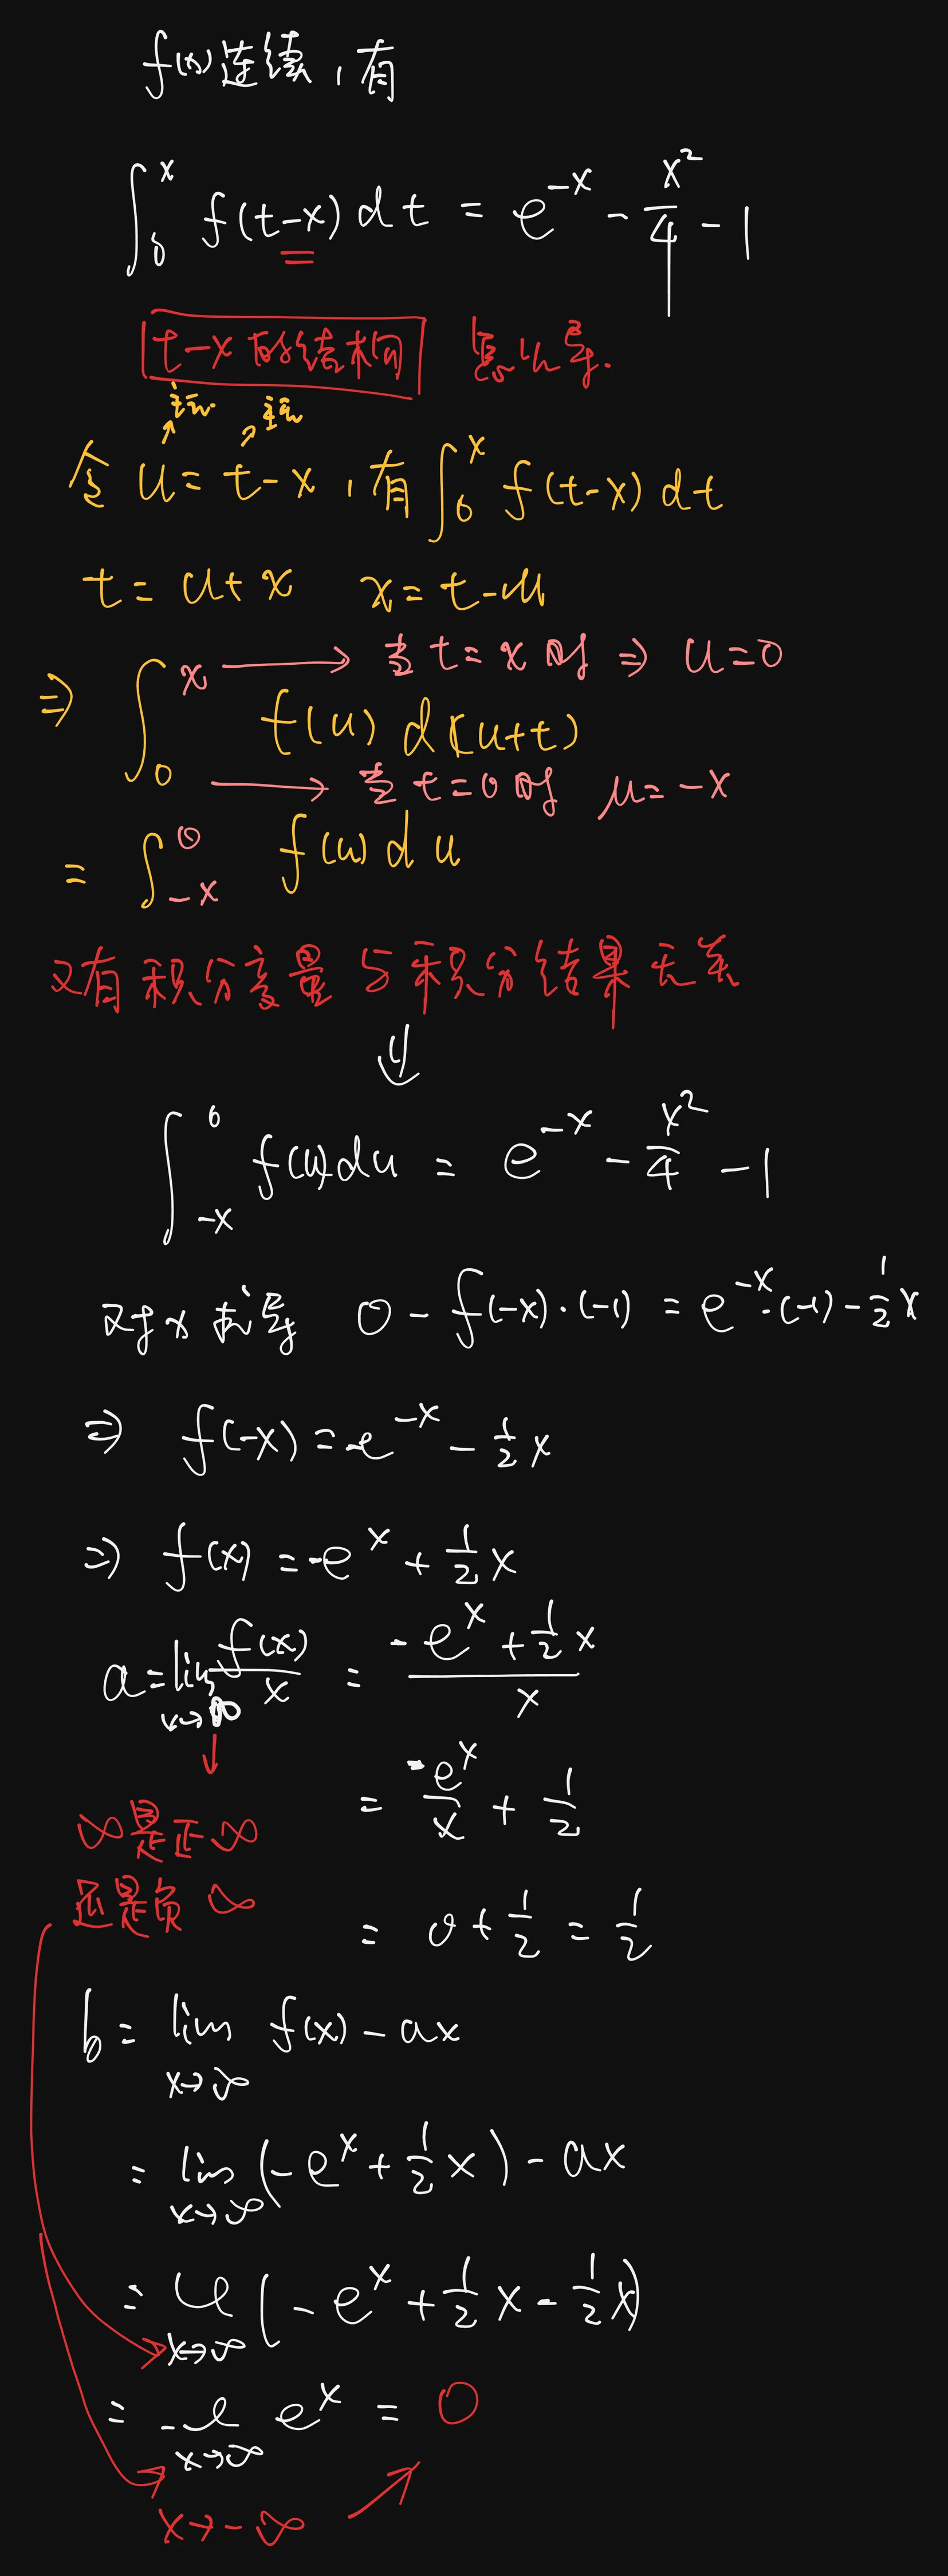 f(x)连续,有
∫₀ˣ f(t-x)dt = e^{-x} - x²/4 - 1
t-x的结构 怎么导.
主元 主元
令 u = t-x,有 ∫₀ˣ f(t-x)dt
t = u+x x = t-u
x → 当 t=x 时 ⇒ u=0
⇒ ∫₀ˣ f(u) d(u+t)
0 → 当 t=0 时 u=-x
= ∫_{-x}^{0} f(u)du
又有积分变量与积分结果无关
⇓
∫_{-x}^{0} f(u)du = e^{-x} - x²/4 - 1
对x求导 0 - f(-x)·(-1) = e^{-x}·(-1) - 1/2 x
⇒ f(-x) = -e^{-x} - 1/2 x
⇒ f(x) = -e^x + 1/2 x
a = lim_{x→∞} f(x)/x = (-e^x + 1/2 x)/x
= -e^x/x + 1/2
∞是正∞
还是负∞
= 0 + 1/2 = 1/2
b = lim_{x→∞} f(x) - ax
= lim_{x→∞} (-e^x + 1/2 x) - ax
= l_{x→∞} (-e^x + 1/2 x - 1/2 x)
= -l_{x→∞} e^x = 0
x→-∞